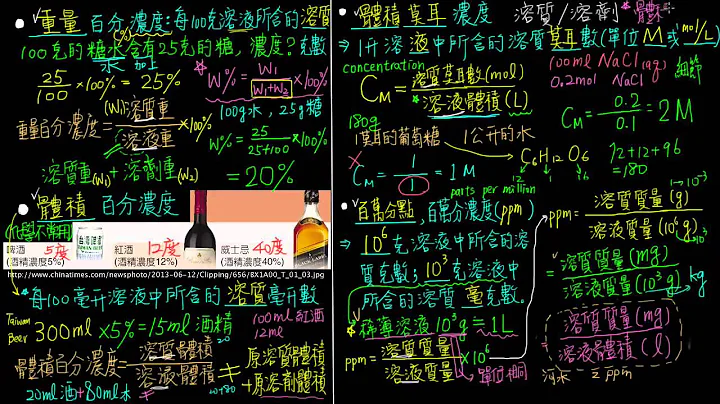 重量百分濃度:每100克溶液所含的溶質克數
100克的糖水含有25克的糖,濃度?
水 加
25/100 ×100% = 25%
W% = W₁/(W₁+W₂) ×100%
重量百分濃度 = (W₁)溶質重/溶液重 ×100%
100g水,25g糖
W% = 25/(25+100) ×100%
= 20%
溶質重(W₁) + 溶劑重(W₂)
體積百分濃度
(化學不常用)
啤酒 5度
(酒精濃度5%)
紅酒 12度
(酒精濃度12%)
威士忌 40度
(酒精濃度40%)
http://www.chinatimes.com/newsphoto/2013-06-12/Clipping/656/BX1A00_T_01_03.jpg
每100毫升溶液中所含的溶質毫升數
Taiwan Beer 300ml ×5% = 15ml 酒精
100ml紅酒
12ml
體積百分濃度 = 溶質體積/溶液體積 ≠ 原溶質體積+原溶劑體積
20ml酒+80ml水 ≠ 20+80
體積莫耳濃度
溶質/溶劑*體積
⇒1升溶液中所含的溶質莫耳數(單位M或mol/L)
concentration
C_M = 溶質莫耳數(mol)/溶液體積(L)
100ml NaCl(aq)
0.2mol NaCl
細節
C_M = 0.2/0.1 = 2M
180g
1莫耳的葡萄糖 1公升的水
C₆H₁₂O₆
12 1 16
72+12+96
=180
× C_M = 1/1 = 1M
parts per million
百萬分點,百萬分濃度(ppm)
⇒10⁶克溶液中所含的溶
質克數;10³克溶液中
所含的溶質毫克數。
稀薄溶液10³g≒1L
ppm = 溶質質量/溶液質量 ×10⁶
單位相同
ppm = 溶質質量(g)/溶液質量(10⁶g)
×10⁻³
×10⁻³
= 溶質質量(mg)/溶液質量(10³g)
kg
= 溶質質量(mg)/溶液體積(l)
河水 2ppm